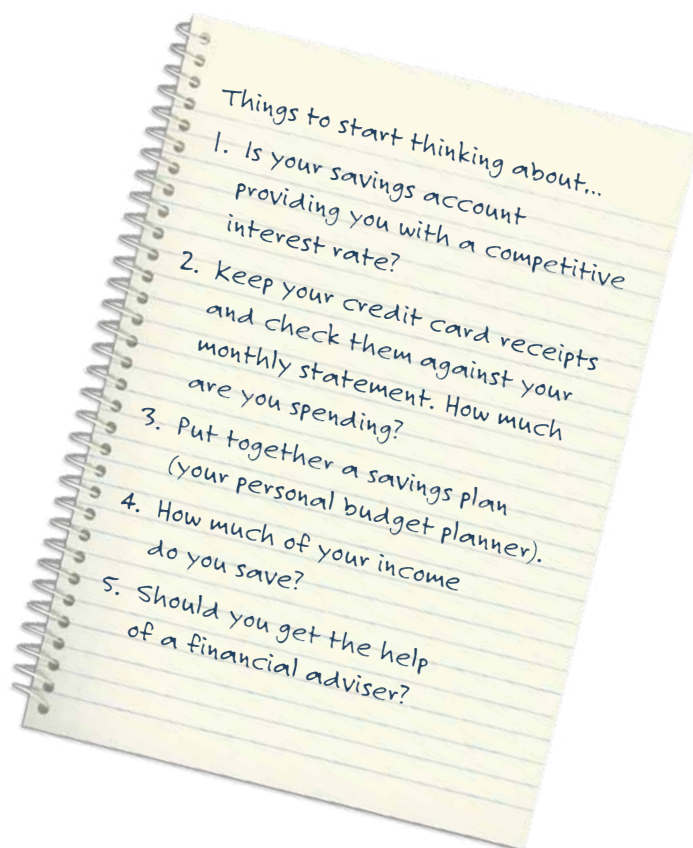 Things to start thinking about...
1. Is your savings account
providing you with a competitive
interest rate?
2. Keep your credit card receipts
and check them against your
monthly statement. How much
are you spending?
3. Put together a savings plan
(your personal budget planner).
4. How much of your income
do you save?
5. Should you get the help
of a financial adviser?